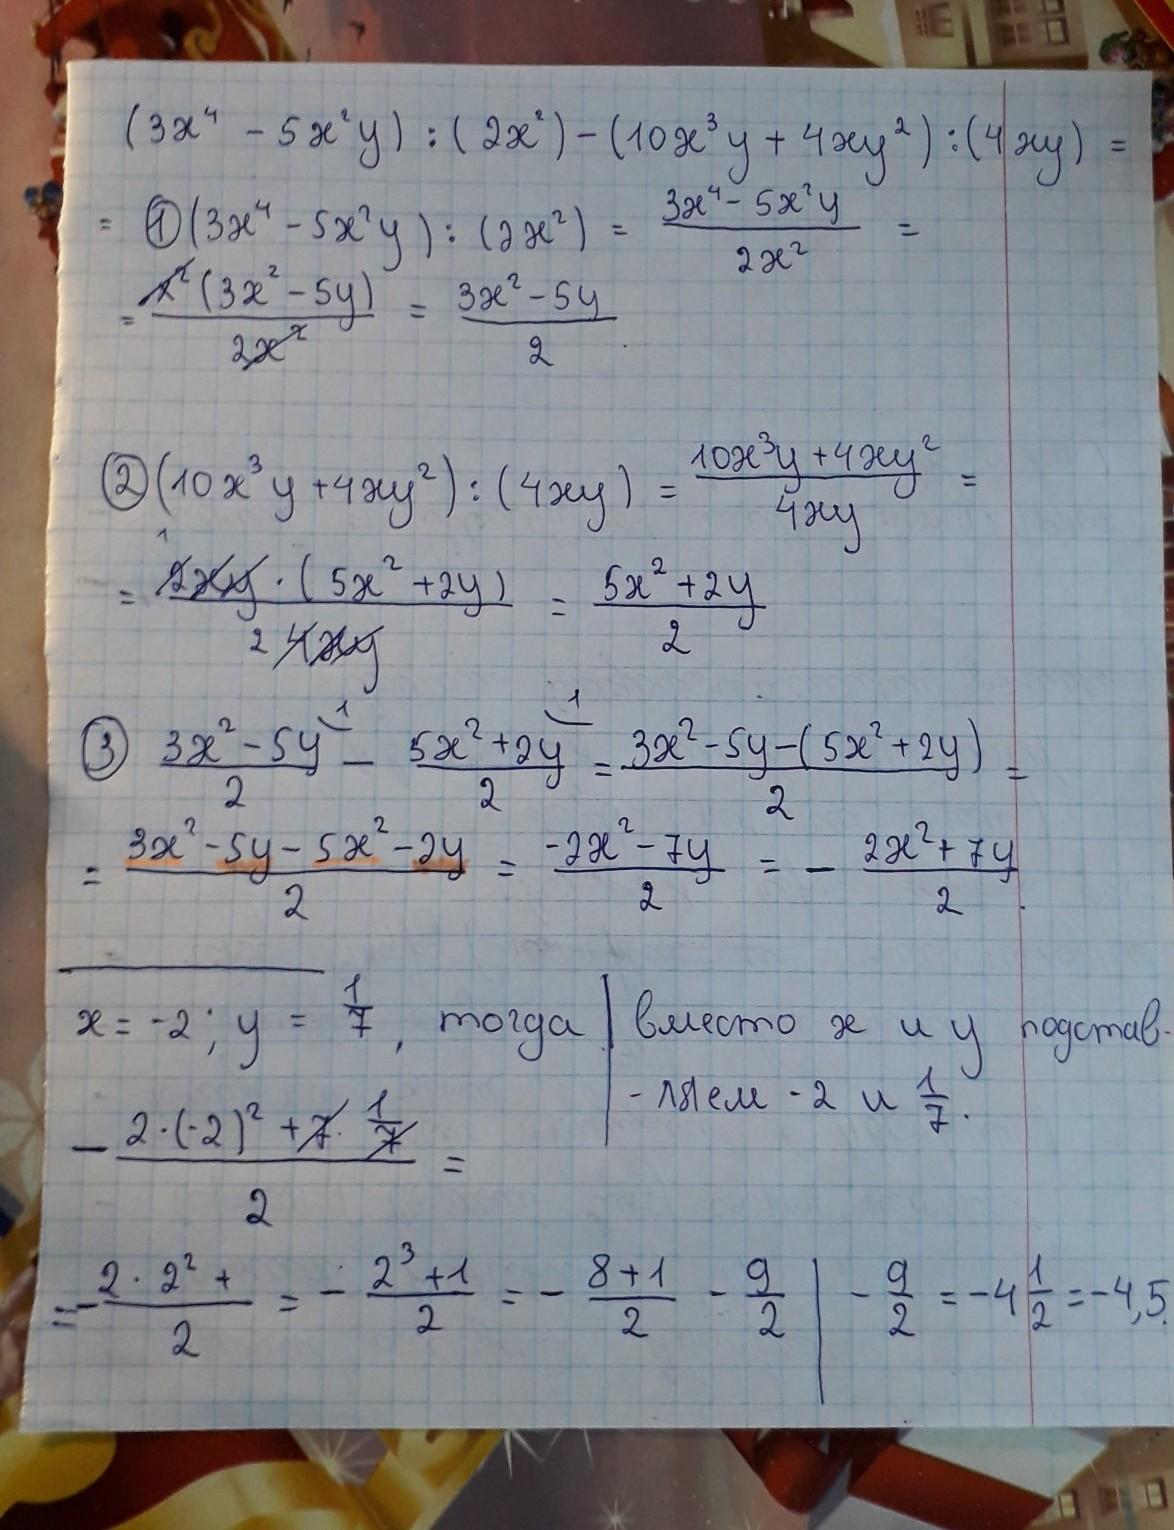 (3x⁴ - 5x²y) : (2x²) - (10x³y + 4xy²) : (4xy) =
= ① (3x⁴ - 5x²y) : (2x²) = (3x⁴ - 5x²y)/(2x²) =
= x²(3x² - 5y)/(2x²) = (3x² - 5y)/2
② (10x³y + 4xy²) : (4xy) = (10x³y + 4xy²)/(4xy) =
= ¹ 2xy · (5x² + 2y)/(2 4xy) = (5x² + 2y)/2
③ (3x² - 5y)/2 ¹ - (5x² + 2y)/2 ¹ = (3x² - 5y - (5x² + 2y))/2 =
= (3x² - 5y - 5x² - 2y)/2 = (-2x² - 7y)/2 = - (2x² + 7y)/2
x = -2; y = 1/7, тогда | вместо x и y подстав-
-ляем -2 и 1/7.
- (2·(-2)² + 7· 1/7)/2 =
= - (2·2² +)/2 = - (2³ + 1)/2 = - (8 + 1)/2 - 9/2 | - 9/2 = -4 1/2 = -4,5.